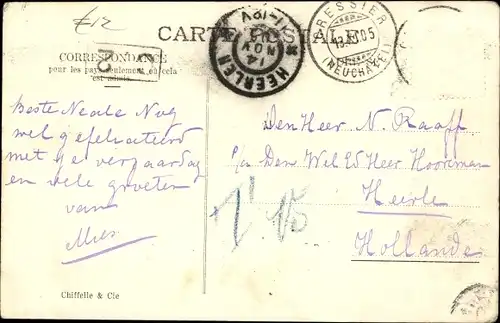 f12
CARTE POSTALE
CORRESPONDANCE
pour les pays seulement où cela
est admis.
HEERLEN
14 NOV
CRESSIER
(NEUCHATEL)
Beste Neale Nog
wel gefeliciteerd
met je verjaardag
en vele groeten
van
Mies
Den Heer N. Raaff
p/a Den Wel Ed Heer Hooreman
Heerle
Hollande
Chiffelle & Cie